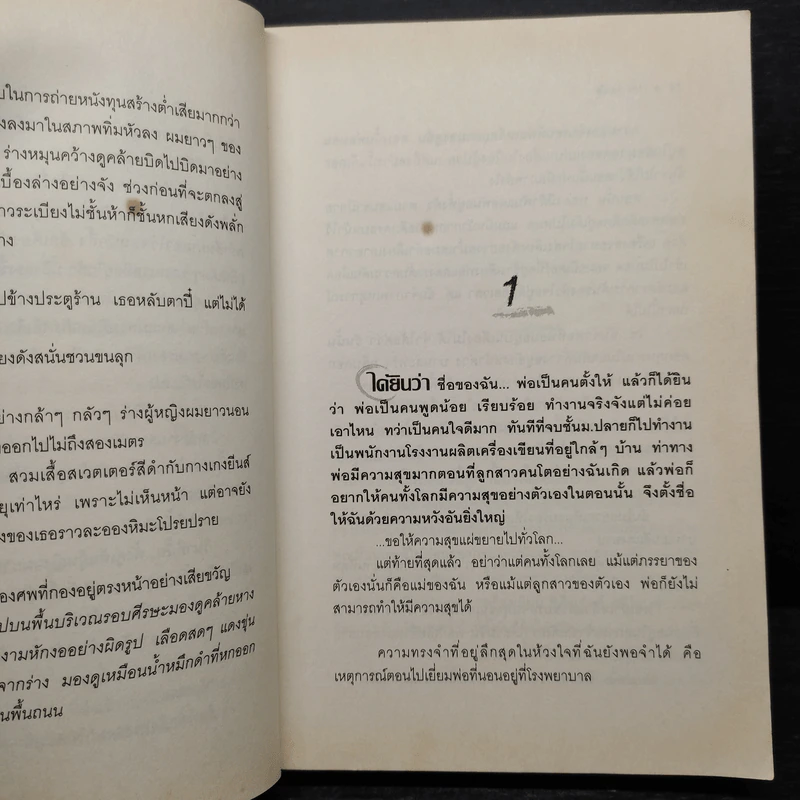 ในการถ่ายหนังทุนสร้างต่ำเสียมากกว่า
งลงมาในสภาพทิ่มหัวลง ผมยาวๆ ของ
ร่างหมุนคว้างดูคล้ายบิดไปบิดมาอย่าง
เบื้องล่างอย่างจัง ช่วงก่อนที่จะตกลงสู่
าวระเบียงไม่ชั้นห้าก็ชั้นหกเสียงดังพลั่ก
าง
ปข้างประตูร้าน เธอหลับตาปี๋ แต่ไม่ได้
ยงดังสนั่นชวนขนลุก
ย่างกล้าๆ กลัวๆ ร่างผู้หญิงผมยาวนอน
งออกไปไม่ถึงสองเมตร
สวมเสื้อสเวตเตอร์สีดำกับกางเกงยีนส์
ยุเท่าไหร่ เพราะไม่เห็นหน้า แต่อาจยัง
งของเธอราวละอองหิมะโปรยปราย
องศพที่กองอยู่ตรงหน้าอย่างเสียขวัญ
ปบนพื้นบริเวณรอบศีรษะมองดูคล้ายหาง
งามหักงออย่างผิดรูป เลือดสดๆ แดงขุ่น
จากร่าง มองดูเหมือนน้ำหมึกดำที่หกออก
นพื้นถนน
1
ได้ยินว่า ชื่อของฉัน... พ่อเป็นคนตั้งให้ แล้วก็ได้ยิน
ว่า พ่อเป็นคนพูดน้อย เรียบร้อย ทำงานจริงจังแต่ไม่ค่อย
เอาไหน ทว่าเป็นคนใจดีมาก ทันทีที่จบชั้นม.ปลายก็ไปทำงาน
เป็นพนักงานโรงงานผลิตเครื่องเขียนที่อยู่ใกล้ๆ บ้าน ท่าทาง
พ่อมีความสุขมากตอนที่ลูกสาวคนโตอย่างฉันเกิด แล้วพ่อก็
อยากให้คนทั้งโลกมีความสุขอย่างตัวเองในตอนนั้น จึงตั้งชื่อ
ให้ฉันด้วยความหวังอันยิ่งใหญ่
...ขอให้ความสุขแผ่ขยายไปทั่วโลก...
แต่ท้ายที่สุดแล้ว อย่าว่าแต่คนทั้งโลกเลย แม้แต่ภรรยาของ
ตัวเองนั่นก็คือแม่ของฉัน หรือแม้แต่ลูกสาวของตัวเอง พ่อก็ยังไม่
สามารถทำให้มีความสุขได้
ความทรงจำที่อยู่ลึกสุดในห้วงใจที่ฉันยังพอจำได้ คือ
เหตุการณ์ตอนไปเยี่ยมพ่อที่นอนอยู่ที่โรงพยาบาล